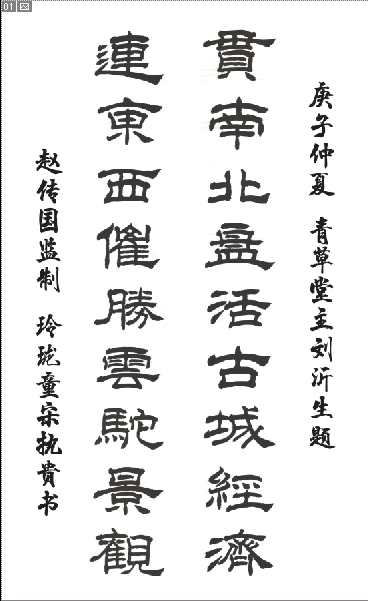 01
庚子仲夏 青草堂主刘沂生题
贯南北盈活古城經濟
連東西催勝雲駝景觀
赵传国监制 玲珑童宗执贵书